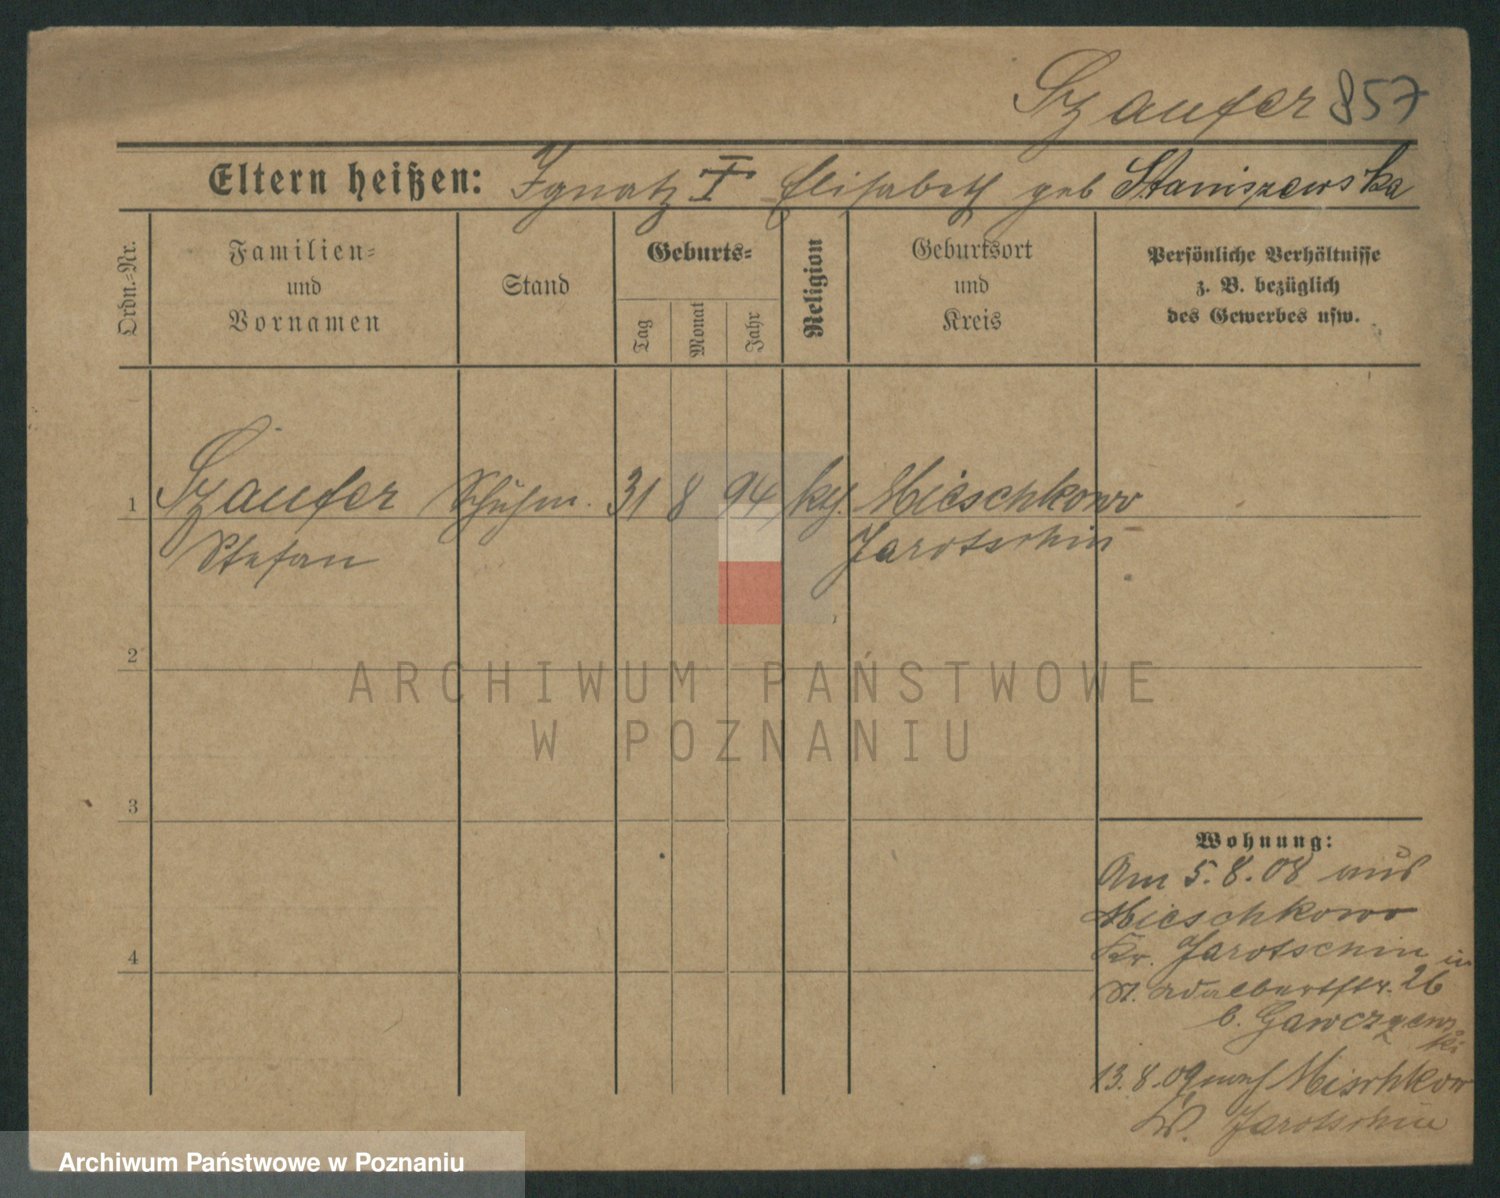 Szaufer 857
Eltern heißen: Ignatz I Elisabeth geb Staniszewska
Ordn.-Nr.
Familien-
und
Vornamen
Stand
Geburts-
Tag
Monat
Jahr
Religion
Geburtsort
und
Kreis
Persönliche Verhältnisse
z. B. bezüglich
des Gewerbes usw.
1 Szaufer Schuhm. 31 8 94 Mieschkowo
Stefan Jarotschin
2
ARCHIWUM PAŃSTWOWE
W POZNANIU
3
Wohnung:
Am 5.8.08 aus
Mieschkowo
Kr. Jarotschin in
St. Adalbertstr. 26
13.8.09 nach Mischkow
Kr. Jarotschin
4
Archiwum Państwowe w Poznaniu